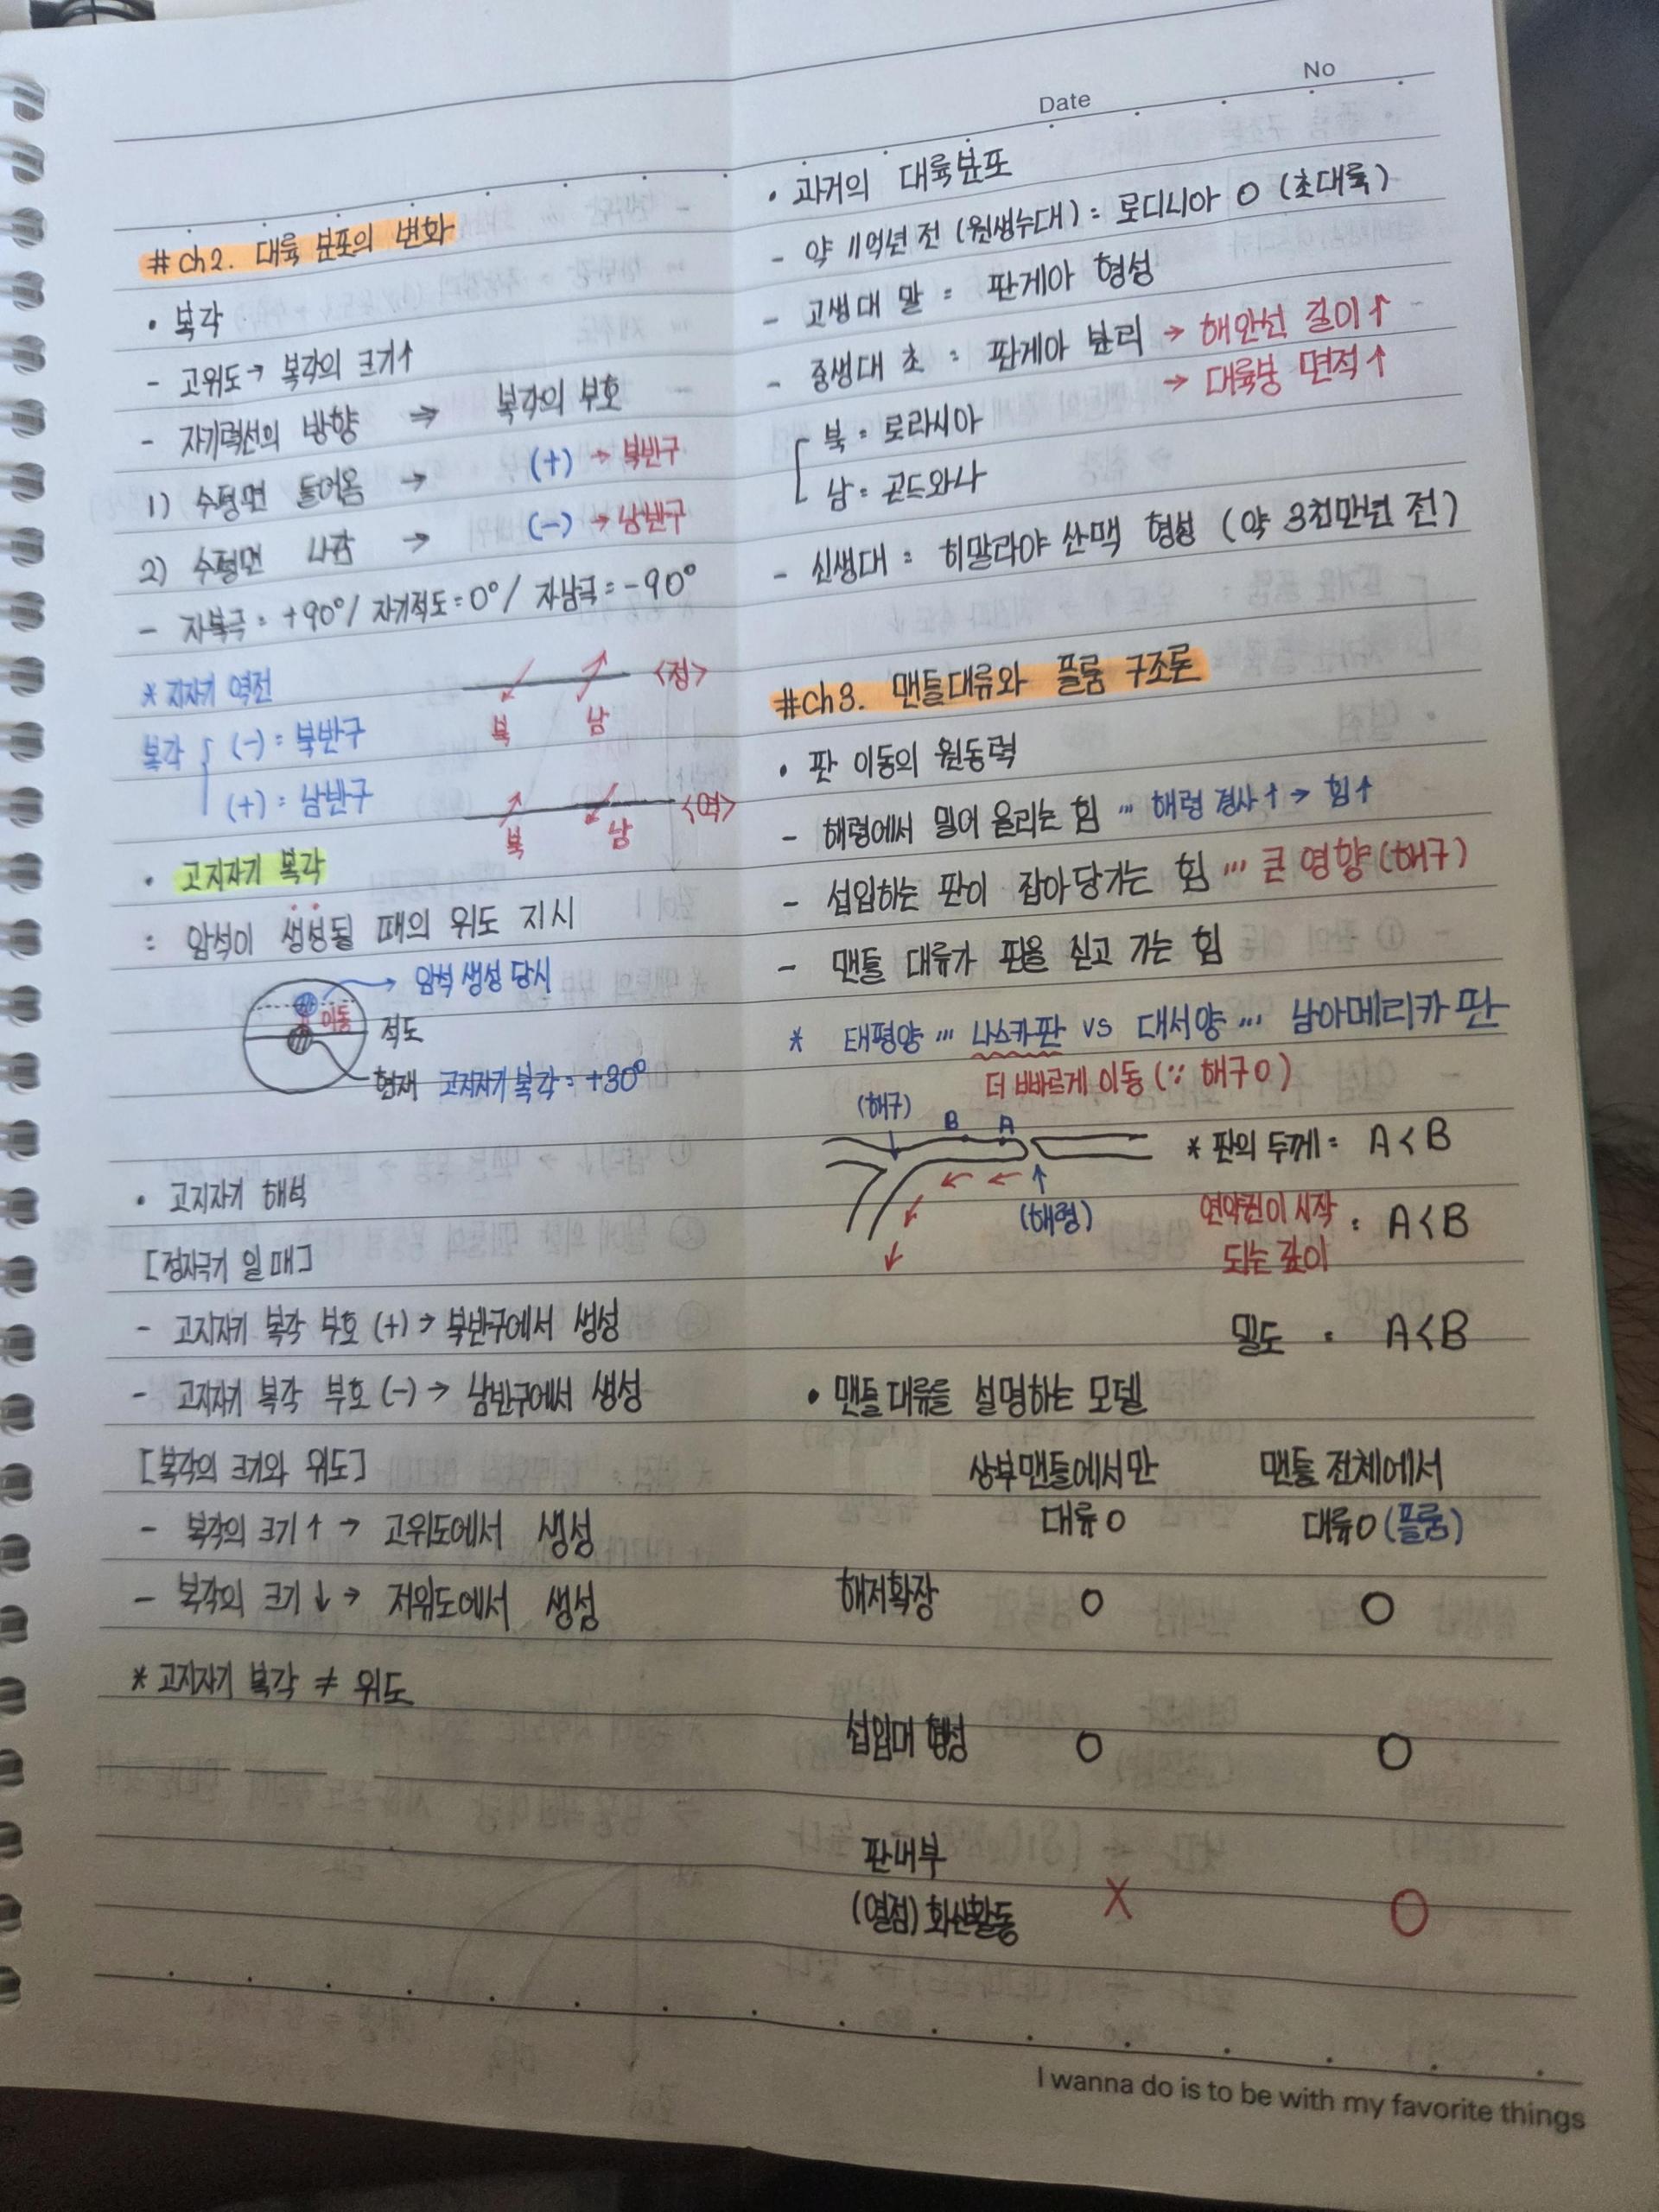 No
Date
#ch2. 대륙 분포의 변화
• 복각
- 고위도 → 복각의 크기↑
- 자기력선의 방향 ⇒ 복각의 부호
1) 수평면 들어옴 → (+) → 북반구
2) 수평면 나감 → (-) → 남반구
- 자북극 = +90° / 자기적도 = 0° / 자남극 = -90°
* 지자기 역전
복각 (-) = 북반구
(+) = 남반구
북 남 <정>
북 남 <역>
• 고지자기 복각
: 암석이 생성될 때의 위도 지시
→ 암석 생성 당시
이동
적도
현재 고지자기 복각 = +30°
• 고지자기 해석
[정자극기 일 때]
- 고지자기 복각 부호 (+) → 북반구에서 생성
- 고지자기 복각 부호 (-) → 남반구에서 생성
[복각의 크기와 위도]
- 복각의 크기 ↑ → 고위도에서 생성
- 복각의 크기 ↓ → 저위도에서 생성
* 고지자기 복각 ≠ 위도
• 과거의 대륙분포
- 약 11억년 전 (원생누대) = 로디니아 O (초대륙)
- 고생대 말 = 판게아 형성
- 중생대 초 = 판게아 분리 → 해안선 길이↑
→ 대륙붕 면적↑
북 = 로라시아
남 = 곤드와나
- 신생대 = 히말라야 산맥 형성 (약 3천만년 전)
#ch3. 맨틀대류와 플룸 구조론
• 판 이동의 원동력
- 해령에서 밀어 올리는 힘 ... 해령 경사↑ → 힘↑
- 섭입하는 판이 잡아당기는 힘 ... 큰 영향(해구)
- 맨틀 대류가 판을 싣고 가는 힘
* 태평양 ... 나스카판 vs 대서양 ... 남아메리카 판
더 빠르게 이동 (∵ 해구 O)
(해구) B A
(해령)
* 판의 두께 = A < B
연약권이 시작
되는 깊이 = A < B
밀도 = A < B
• 맨틀 대류를 설명하는 모델
상부맨틀에서만 맨틀 전체에서
대류 O 대류 O (플룸)
해저확장 O O
섭입대 형성 O O
판 내부
(열점) 화산활동 X O
I wanna do is to be with my favorite things